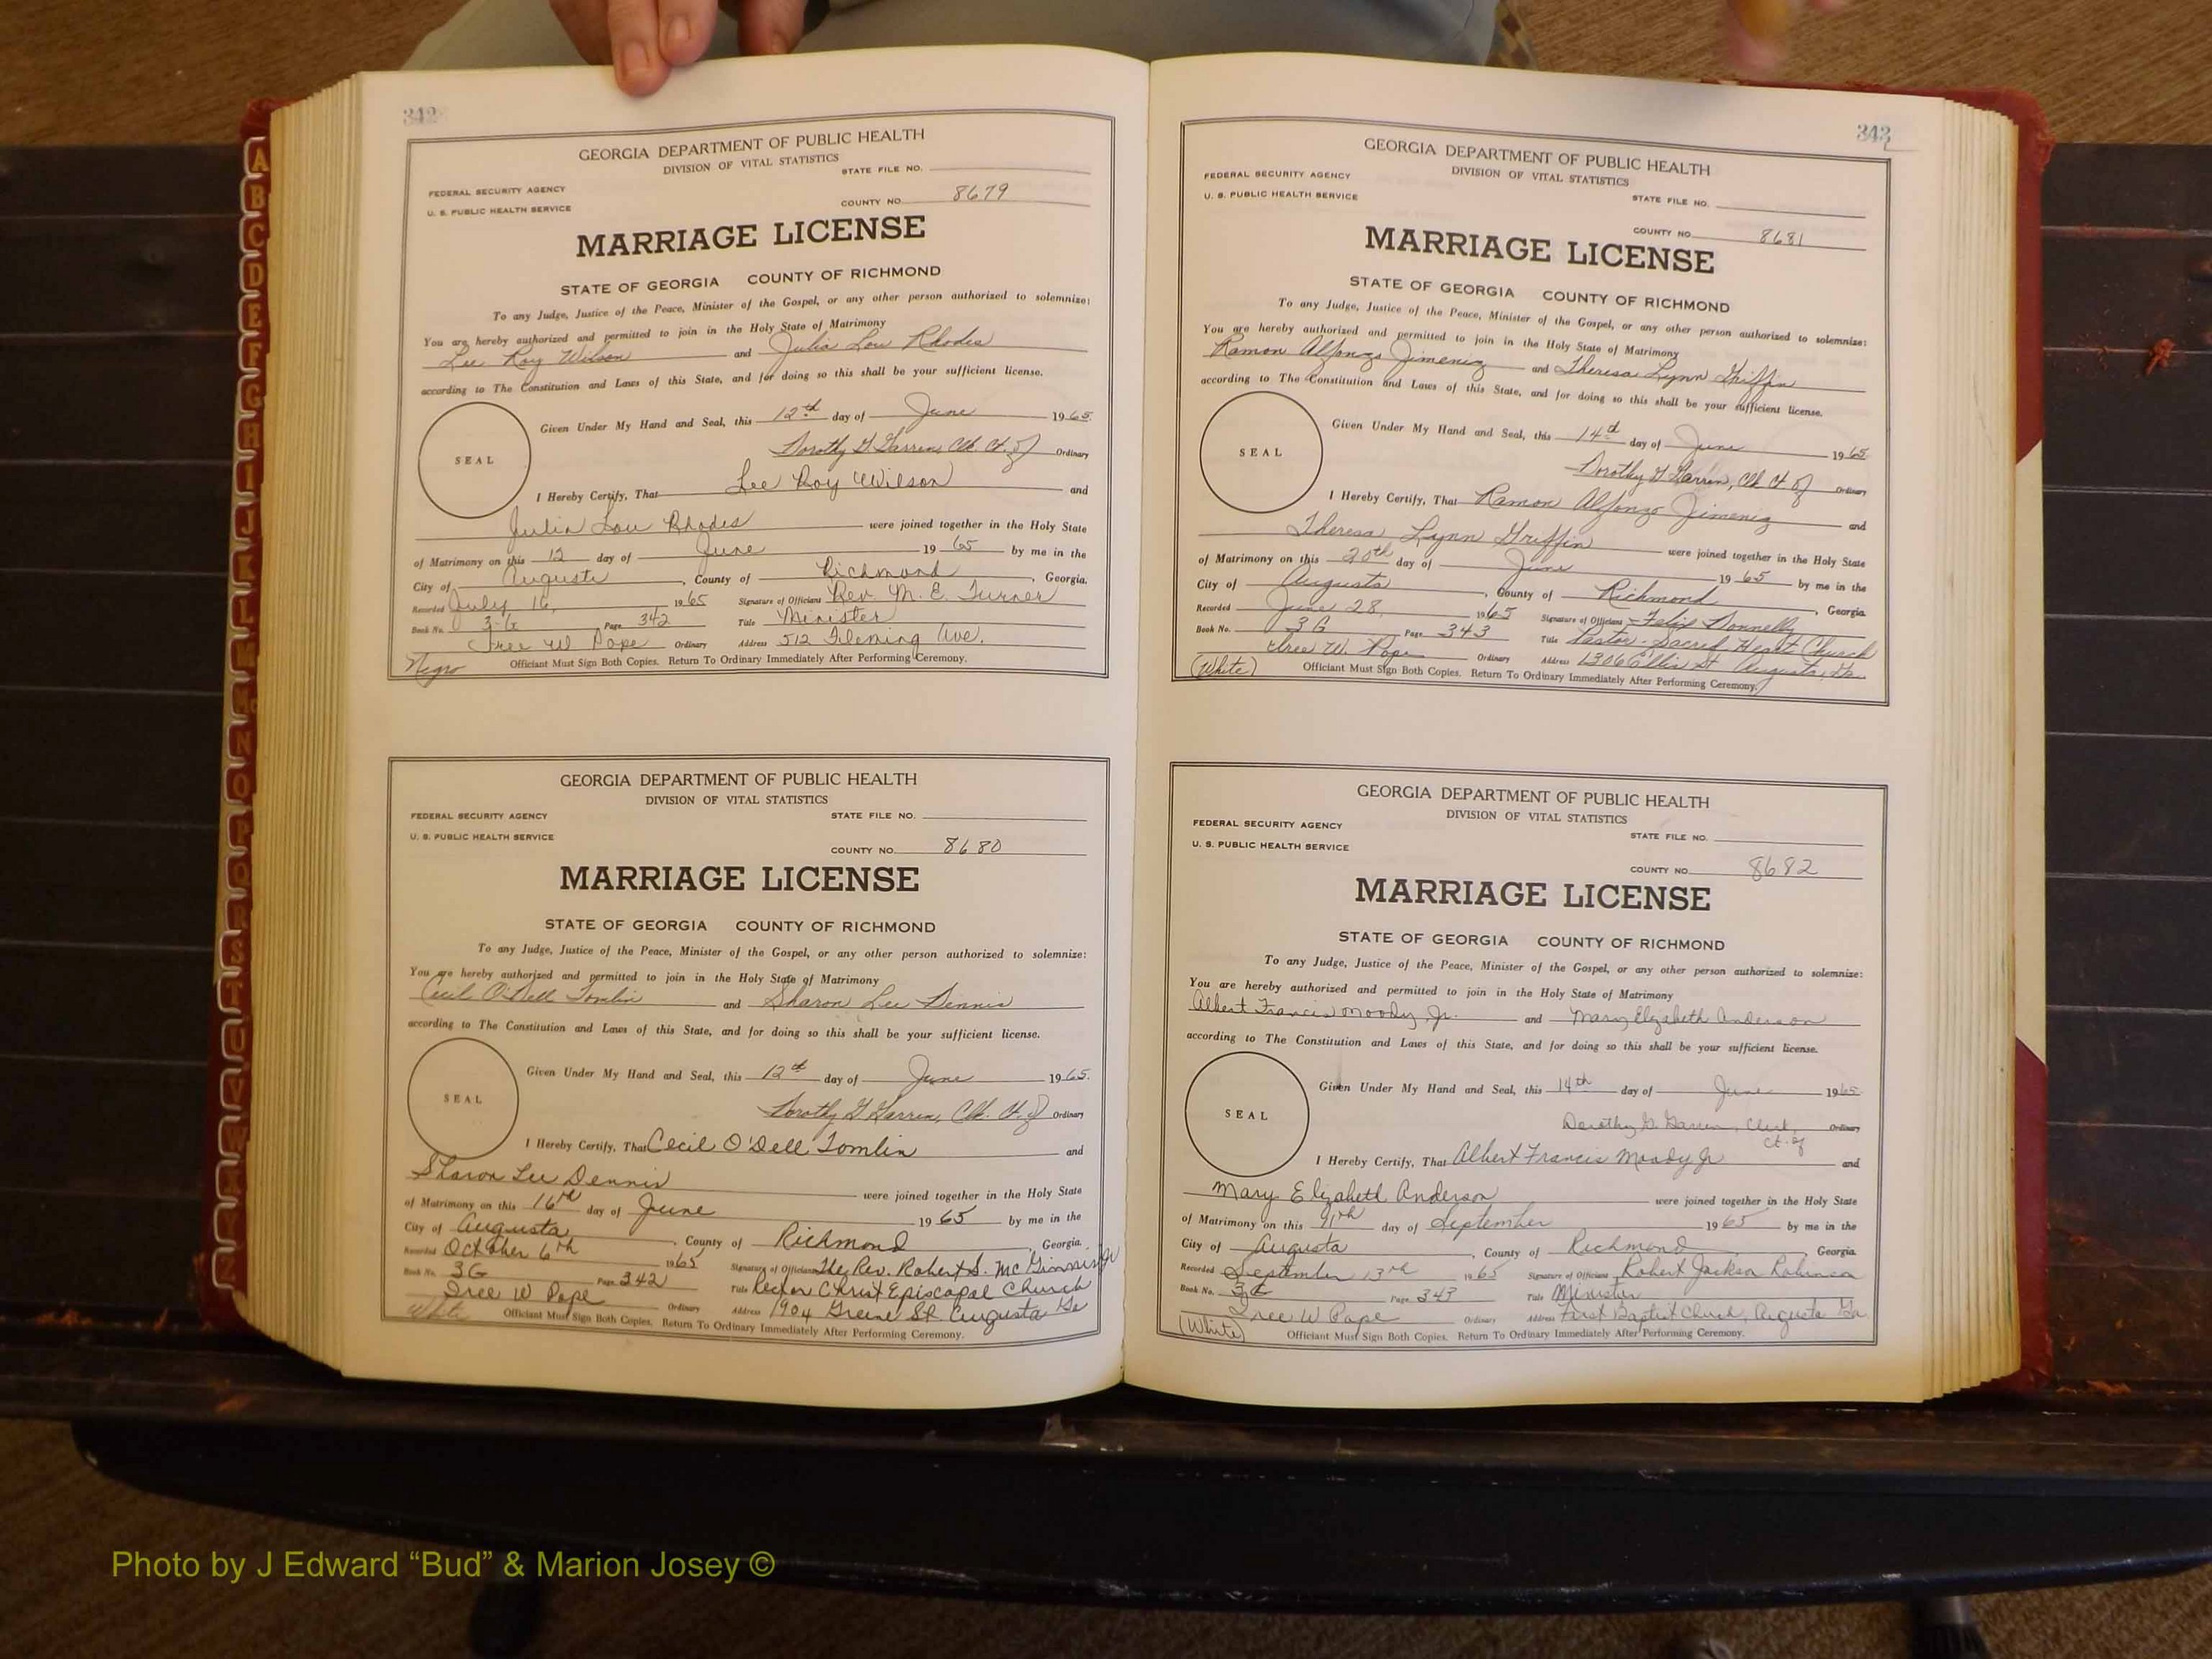 342
GEORGIA DEPARTMENT OF PUBLIC HEALTH
DIVISION OF VITAL STATISTICS
STATE FILE NO.
FEDERAL SECURITY AGENCY
U. S. PUBLIC HEALTH SERVICE
COUNTY NO. 8679
MARRIAGE LICENSE
STATE OF GEORGIA COUNTY OF RICHMOND
To any Judge, Justice of the Peace, Minister of the Gospel, or any other person authorized to solemnize:
You are hereby authorized and permitted to join in the Holy State of Matrimony
Lee Roy Wilson and Julia Lou Rhodes
according to The Constitution and Laws of this State, and for doing so this shall be your sufficient license.
Given Under My Hand and Seal, this 12th day of June 1965.
SEAL
Dorothy G Garren, Clk. Ct. of Ordinary
I Hereby Certify, That Lee Roy Wilson and
Julia Lou Rhodes were joined together in the Holy State
of Matrimony on this 12 day of June 1965 by me in the
City of Augusta, County of Richmond, Georgia.
Recorded July 16, 1965 Signature of Officiant Rev. M. E. Turner
Book No. 3-G Page 342 Title Minister
Iree W Pope Ordinary Address 512 Fleming Ave.
Negro Officiant Must Sign Both Copies. Return To Ordinary Immediately After Performing Ceremony.
GEORGIA DEPARTMENT OF PUBLIC HEALTH
DIVISION OF VITAL STATISTICS
FEDERAL SECURITY AGENCY STATE FILE NO.
U. S. PUBLIC HEALTH SERVICE
COUNTY NO. 8680
MARRIAGE LICENSE
STATE OF GEORGIA COUNTY OF RICHMOND
To any Judge, Justice of the Peace, Minister of the Gospel, or any other person authorized to solemnize:
You are hereby authorized and permitted to join in the Holy State of Matrimony
Cecil O'Dell Tomlin and Sharon Lee Dennis
according to The Constitution and Laws of this State, and for doing so this shall be your sufficient license.
Given Under My Hand and Seal, this 12th day of June 1965.
SEAL
Dorothy G Garren, Clk. Ct. of Ordinary
I Hereby Certify, That Cecil O'Dell Tomlin and
Sharon Lee Dennis were joined together in the Holy State
of Matrimony on this 16th day of June 1965 by me in the
City of Augusta, County of Richmond, Georgia.
Recorded October 6th 1965 Signature of Officiant The Rev. Robert S.
Book No. 3G Page 342 Title Rector Christ Episcopal Church
Iree W Pope Ordinary Address 1904 Greene St Augusta Ga
White Officiant Must Sign Both Copies. Return To Ordinary Immediately After Performing Ceremony.
343
GEORGIA DEPARTMENT OF PUBLIC HEALTH
DIVISION OF VITAL STATISTICS
FEDERAL SECURITY AGENCY
U. S. PUBLIC HEALTH SERVICE STATE FILE NO.
COUNTY NO. 8681
MARRIAGE LICENSE
STATE OF GEORGIA COUNTY OF RICHMOND
To any Judge, Justice of the Peace, Minister of the Gospel, or any other person authorized to solemnize:
You are hereby authorized and permitted to join in the Holy State of Matrimony
Ramon Alfonzo Jimenez and Theresa Lynn Griffin
according to The Constitution and Laws of this State, and for doing so this shall be your sufficient license.
Given Under My Hand and Seal, this 14th day of June 1965
SEAL
Dorothy G Garren, Clk Ct of Ordinary
I Hereby Certify, That Ramon Alfonzo Jimenez and
Theresa Lynn Griffin were joined together in the Holy State
of Matrimony on this 20th day of June 1965 by me in the
City of Augusta, County of Richmond, Georgia.
Recorded June 28, 1965 Signature of Officiant Felix Donnelly
Book No. 3G Page 343 Title Pastor - Sacred Heart Church
Iree W. Pope Ordinary Address 1306 Ellis St Augusta, Ga.
(White) Officiant Must Sign Both Copies. Return To Ordinary Immediately After Performing Ceremony.
GEORGIA DEPARTMENT OF PUBLIC HEALTH
DIVISION OF VITAL STATISTICS
FEDERAL SECURITY AGENCY
STATE FILE NO.
U. S. PUBLIC HEALTH SERVICE
COUNTY NO. 8682
MARRIAGE LICENSE
STATE OF GEORGIA COUNTY OF RICHMOND
To any Judge, Justice of the Peace, Minister of the Gospel, or any other person authorized to solemnize:
You are hereby authorized and permitted to join in the Holy State of Matrimony
Albert Francis Moody, Jr. and Mary Elizabeth Anderson
according to The Constitution and Laws of this State, and for doing so this shall be your sufficient license.
Given Under My Hand and Seal, this 14th day of June 1965
SEAL
Dorothy G. Garren, Clerk, Ct. of Ordinary
I Hereby Certify, That Albert Francis Moody Jr and
Mary Elizabeth Anderson were joined together in the Holy State
of Matrimony on this day of September 1965 by me in the
City of Augusta, County of Richmond, Georgia.
Recorded September 13th 1965 Signature of Officiant Robert Jackson Robinson
Book No. 3G Page 343 Title Minister
Iree W Pope Ordinary Address First Baptist Church, Augusta Ga.
(White) Officiant Must Sign Both Copies. Return To Ordinary Immediately After Performing Ceremony.
A
B
C
D
E
F
G
H
I
J
K
L
M
Mc
N
O
P
Q
R
S
T
U
V
W
X
Y
Z
Photo by J Edward “Bud” & Marion Josey ©